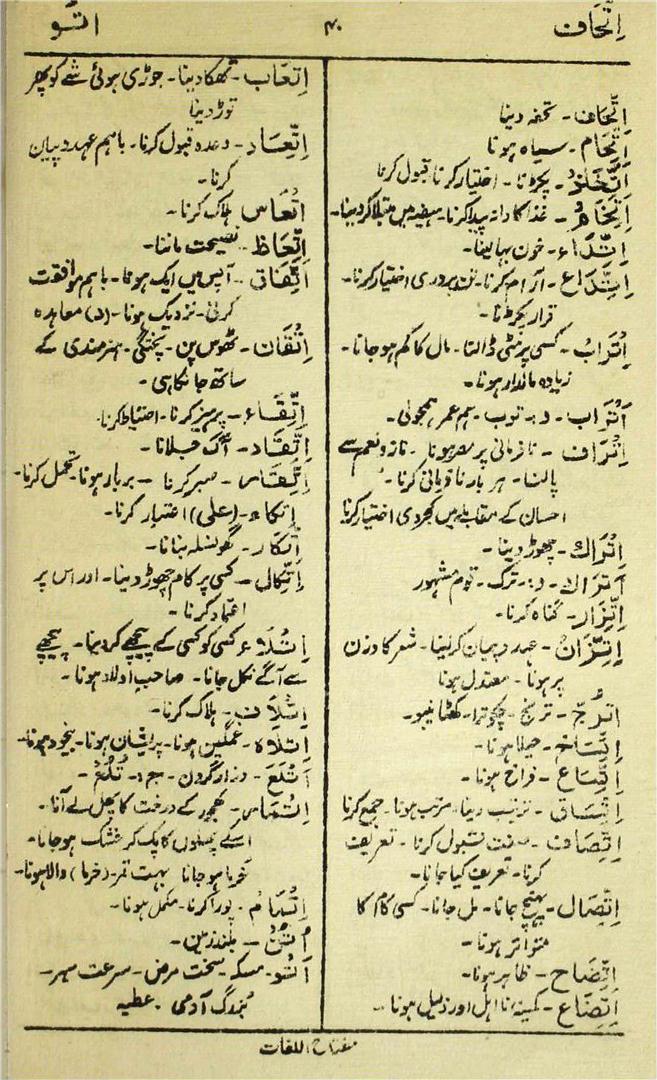 اِتِّحَاف
۴۰
اتو
اِتِّحَاف۔ تحفہ دینا
اِتِّحَام۔ سیاہ ہونا
اِتِّخَاذ۔ پکڑنا۔ اختیار کرنا قبول کرنا
اِتِّخَام۔ غذا کا دانہ پیدا کرنا۔ ہیضہ میں مبتلا کر دینا۔
اِتِّدَاء۔ خون بہا لینا۔
اِتِّدَاع۔ آرام کرنا۔ تن پروری اختیار کرنا۔
قرار پکڑنا۔
اِتْرَابُ۔ کسی پر مٹی ڈالنا۔ مال کا کم ہو جانا۔
زیادہ مالدار ہونا۔
اَتْرَاب۔ و: توب۔ ہم عمر ہمجولی۔
اِتْرَاف۔ نافرمانی پر مصر ہونا۔ ناز و نعم سے
پالنا۔ ہر بار نافرمانی کرنا۔
احسان کے مقابلے میں کجروی اختیار کرنا
اِتْرَاك۔ چھوڑ دینا۔
اَتْرَاك۔ و: ترک۔ قوم مشہور
اِتِّزَار۔ گناہ کرنا۔
اِتِّزَانُ۔ عہد و پیمان کر لینا۔ شعر کا وزن
پر ہونا۔ معتدل ہونا
اُتْرُجّ۔ ترنج۔ چکوترا۔ کھٹا نیبو۔
اِتِّسَاخ۔ میلا ہونا۔
اِتِّسَاع۔ فراخ ہونا۔
اِتِّسَاق۔ ترتیب دینا۔ مرتب ہونا۔ جمع کرنا
اِتِّصَاف۔ صفت قبول کرنا۔ تعریف
کرنا۔ تعریف کیا جانا۔
اِتِّصَال۔ پہنچ جانا۔ مل جانا۔ کسی کام کا
متواتر ہونا۔
اِتِّضَاح۔ ظاہر ہونا۔
اِتِّضَاع۔ کمینہ نا اہل اور ذلیل ہونا۔
اِتعَاب۔ تھکا دینا۔ جوڑی ہوئی شے کو پھر
توڑ دینا
اِتِّعَاد۔ وعدہ قبول کرنا۔ باہم عہد و پیمان
کرنا۔
اِتْعَاس ہلاک کرنا۔
اِتِّعَاظ۔ نصیحت ماننا۔
اِتِّفَاق۔ آپس میں ایک ہونا۔ باہم موافقت
کرنی۔ نزدیک ہونا۔ (د) معاہدہ
اِتْقَان۔ ٹھوس پن۔ پختگی۔ ہنرمندی کے
ساتھ جانکاہی۔
اِتِّقَاء۔ پرہیز کرنا۔ احتیاط کرنا۔
اِتِّقَاد۔ آگ جلانا۔
صبر کرنا۔ بربار ہونا۔ تحمل کرنا۔
اِتکاء۔ (علی) اعتبار کرنا۔
اِتّکار۔ گھونسلہ بنانا۔
اِتِّکال۔ کسی پر کام چھوڑ دینا۔ اور اس پر
اعتماد کرنا۔
اِتْلَاء کسی کو کسی کے پیچھے کر دینا۔ پیچھے
سے آگے نکل جانا۔ صاحبِ اولاد ہونا۔
اِتْلَاف۔ ہلاک کرنا۔
اِتلاه۔ غمگین ہونا۔ پریشان ہونا۔ بیخود ہونا۔
اَتْلَع۔ دراز گردن۔ ج: تُلْعٌ۔
اِتْمَار۔ کھجور کے درخت کا پھل لے آنا۔
اسکے پھلوں کا پک کر خشک ہو جانا۔
خرما ہو جانا بہت تمر (خرما) والا ہونا۔
اِتْمَام۔ پورا کرنا۔ مکمل ہونا۔
اُتُنٌ۔ بلند زمین۔
اَتْو۔ مسکہ۔ سخت مرض۔ سرعت سیر۔
بزرگ آدمی۔ عطیہ
مفتاح اللغات